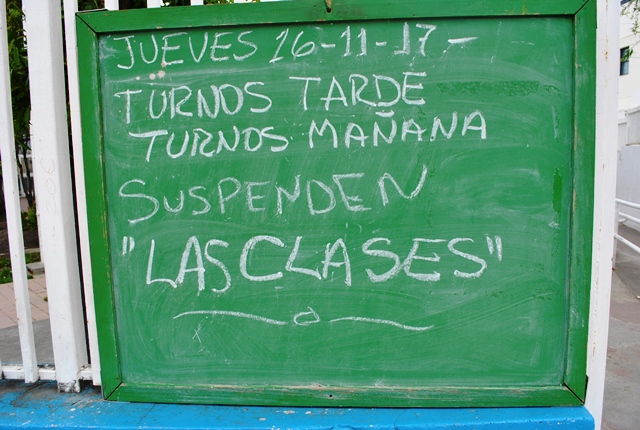 JUEVES 16-11-17-
TURNOS TARDE
TURNOS MAÑANA
SUSPENDEN
"LAS CLASES"